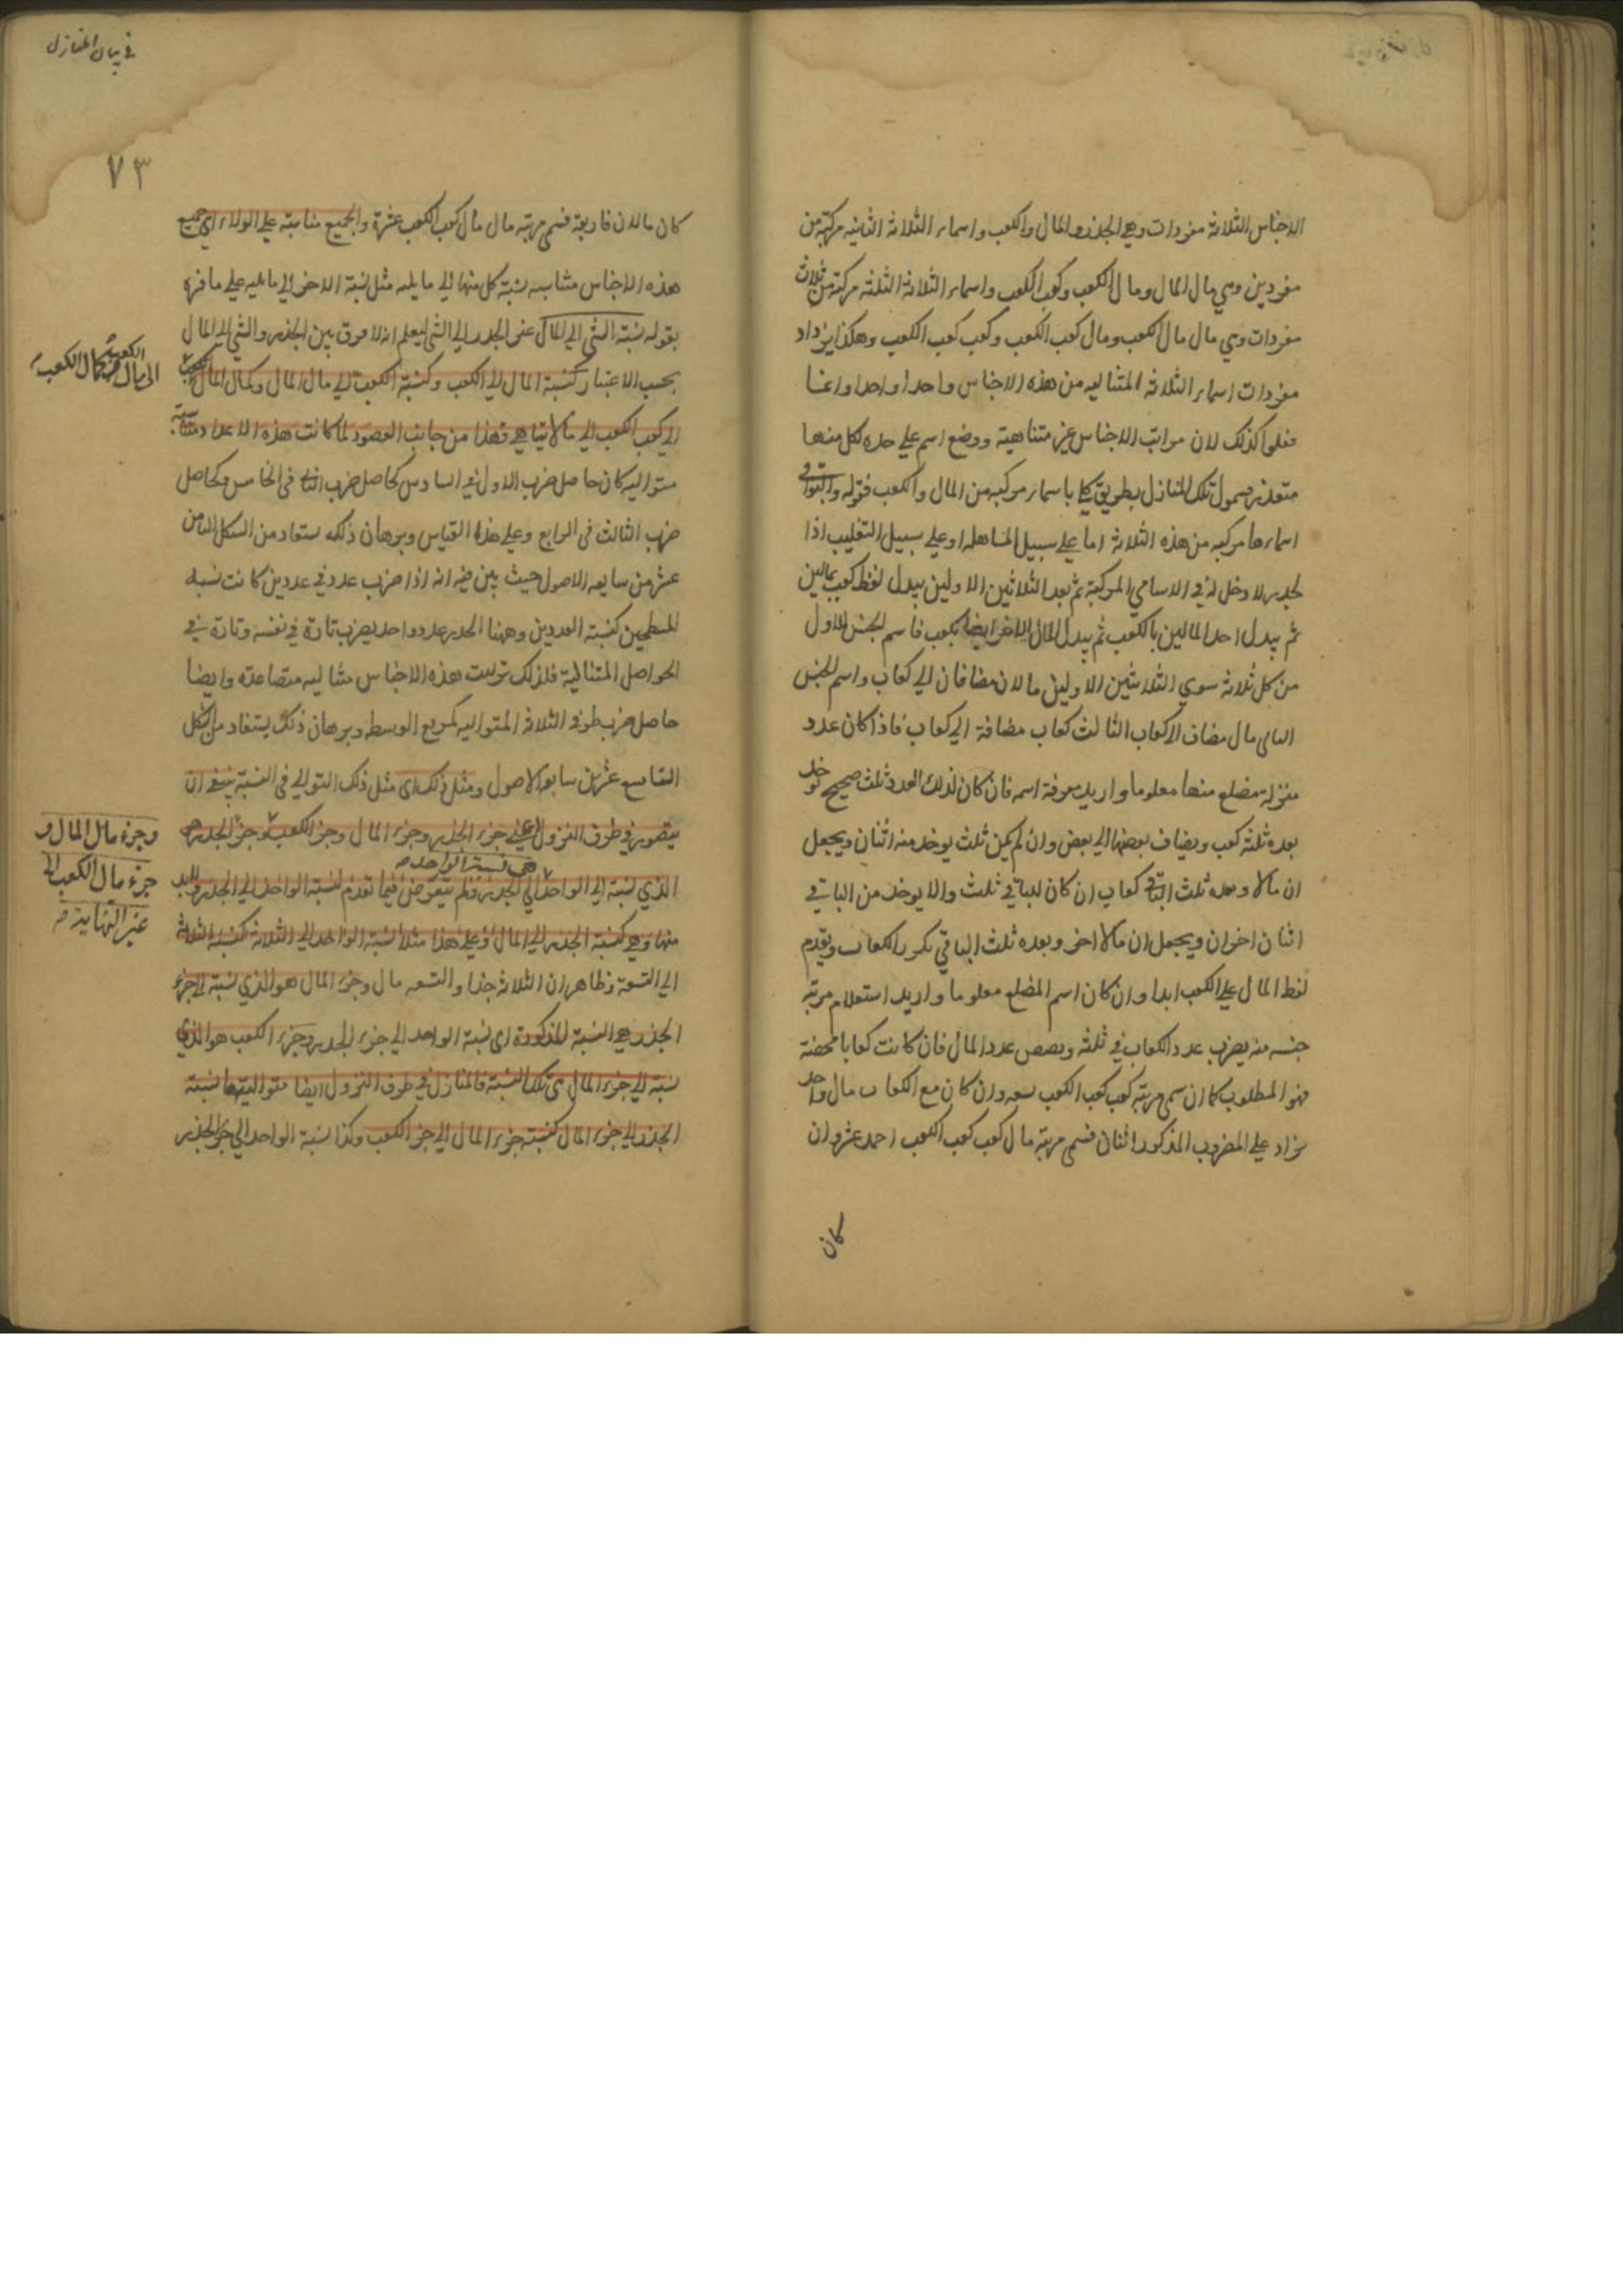 الاجناس الثلاثة مفردات وهي الجذر والمال والكعب واسماء الثلاثة الثانيه مركبة من
مفردين وهي مال المال ومال الكعب وكعب الكعب واسماء الثلاثة الثلثه مركبة من ثلاث
مفردات وهي مال مال الكعب ومال كعب الكعب وكعب كعب الكعب وهكذا يزداد
مفردات اسماء الثلاثة المتتاليه من هذه الاجناس واحدا واحدا وانما
فعلوا كذلك لان مراتب الاجناس غير متناهية ووضع اسم على حده لكل منها
متعذر تلك المنازل بطريق باسماء مركبه من المال والكعب فقوله والبواقي
اسماءها مركبه من هذه الثلاثة اما على سبيل المساهله او على سبيل التغليب اذا
لجذر لا دخل له في الاسامي المركبة ثم بعد الثلاثين الاولين يبدل لفظ كعب بمالين
ثم يبدل احد المالين بالكعب ثم يبدل المال الاخر ايضا بكعب فاسم الجنس الاول
من كل ثلاثة سوي الثلاثين الاولين مالان مضافان الي كعاب واسم الجنس
الثاني مال مضاف الا كعاب الثالث كعاب مضافة الي كعاب فاذا كان عدد
منزلة مضلع منها معلوما واريد معرفة اسمه فان كان لذلك العدد ثلث صحيح يوخذ
بعده ثلثه كعب ويضاف بعضها الي بعض وان لم يكن ثلث يوخذ منه اثنان ويجعل
ان مالا وبعده ثلث الباقي كعاب ان كان للباقي ثلث والا يوخذ من الباقي
اثنان اخران ويجعل ان مالا اخر وبعده ثلث الباقي يكرر الكعاب ويقدم
لفظ المال علي الكعب ابدا وان كان اسم المضلع معلوما واريد استعلام مرتبة
جنسه منه يضرب عدد الكعاب في ثلثه عدد المال فان كانت كعابا محضة
فهو المطلوب كما ان سمي مرتبة كعب كعب الكعب تسعه وان كان مع الكعاب مال واحد
يزاد علي المضروب المذكور اثنان فسمي مرتبة مال كعب كعب الكعب احد عشر وان
كان
في بيان المنازل
٧٣
كان مالان فاربعة فسمي مرتبة مال مال كعب الكعب عشرة والجميع متناسبة علي الولاء اي جميع
هذه الاجناس متناسبه نسبة كل منها الي ما يليه مثل نسبة الاخر الي ما يليه علي ما فره
بقوله نسبة الشي الي المال عني الجذر الي الشي ليعلم انه لا فرق بين الجذر والشي الي المال
بحسب الاعتبار كنسبة المال الي الكعب وكنسبة الكعب الي مال المال وكمال المال
الكعب
الي مال الكعب
الي كعب الكعب الي ما لا يتناهي فهذا من جانب الصعود لما كانت هذه الاعداد متناسبة
متواليه كان حاصل ضرب الاول في السادس كحاصل ضرب الثاني في الخامس وكحاصل
ضرب الثالث في الرابع وعلي هذا القياس وبرهان ذلك يستفاد من الشكل الثامن
عشر من سابعه الاصول حيث بين فيه انه اذا ضرب عدد في عددين كانت نسبة
المسطحين كنسبة العددين وههنا الجذر عدد واحد يضرب تارة في نفسه وتارة في
الحواصل المتتالية فلذلك ترتبت هذه الاجناس متتاليه متصاعدة وايضا
حاصل ضرب طرفي الثلاثة المتواليه كمربع الوسط وبرهان ذلك يستفاد من الشكل
التاسع عشر من سابع الاصول ومثل ذلك اي مثل ذلك التوالي في النسبة ينبغي ان
يتصور في طرف النزول اعني جزء الجذر وجزء المال وجزء الكعب وجزء الجذر
وجزء مال المال و
جزء مال الكعب الي
غير النهاية
هي نسبة الواحد
الذي نسبة الي الواحد الي الجذر فلم يتعرض فيما تقدم لنسبة الواحد الي الجذر
منها وهي كنسبة الجذر الي المال وعلي هذا مثلا نسبة الواحد الي الثلاثة كنسبة الثلاثة
الي التسعة وظاهر ان الثلاثة جذر والتسعه مال وجزء المال هو الذي نسبة الي جزء
الجذر هي النسبة المذكورة اي نسبة الواحد الي جزء الجذر وجزء الكعب هو الذي
نسبة الي جزء المال تلك النسبة فالمنازل في طرف النزول ايضا متوالية نسبة
الجذر الي جزء المال كنسبة جزء المال الي جزء الكعب وكذا نسبة الواحد الي جزء الجذر